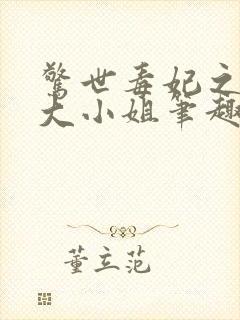 驚世毒妃之
大小姐筆趣
董立范